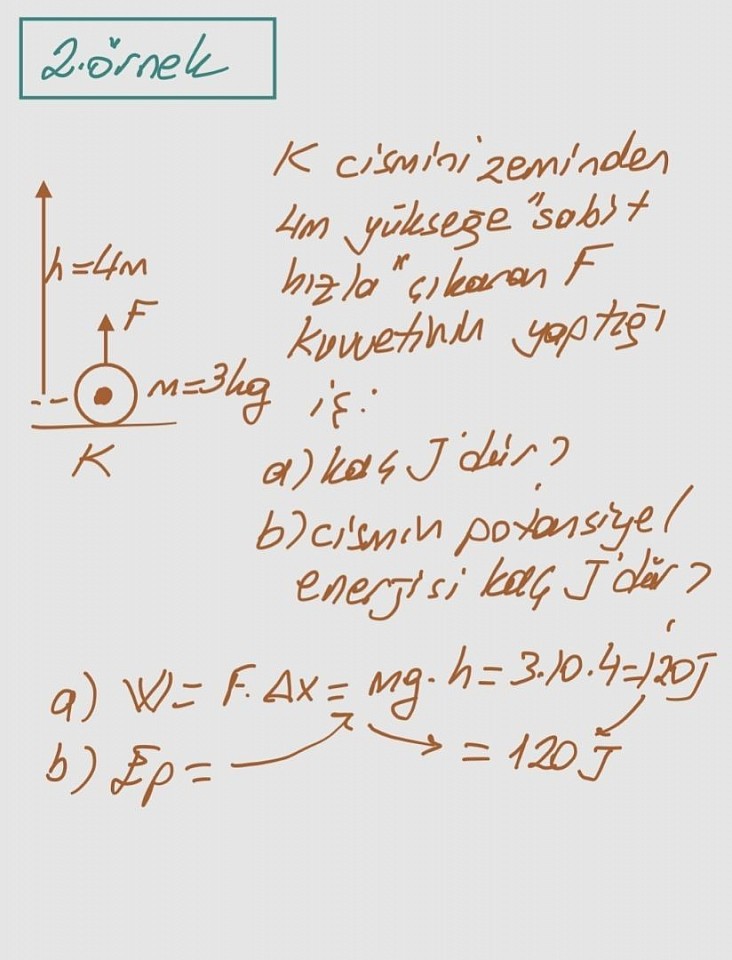 2.örnek
K cismini zeminden
4m yükseğe "sabit
hızla" çıkaran F
kuvvetinin yaptığı
iş:
h=4m
F
m=3kg
K
a) kaç J'dür?
b) cismin potansiyel
enerjisi kaç J'dür?
a) W = F. Δx = mg. h = 3.10.4 = 120J
b) Ep = = 120J